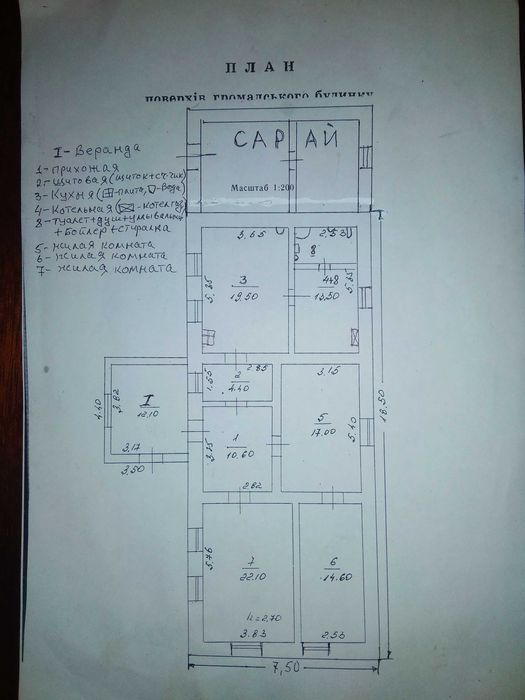 ПЛАН
поверхів громадського будинку
САРАЙ
Масштаб 1:200
I - Веранда
1 - прихожая
2 - щитовая (щиток+сч-чик)
3 - Кухня (-плита, -вода)
4 - Котельная (-котел газ)
8 - туалет+душ+умывальн
+бойлер+стиралка
5 - жилая комната
6 - жилая комната
7 - жилая комната
3,65
2,53
8
3
19.50
5,35
4+8
13,50
5,35
2,85
2
4.40
1,55
3,15
5
17.00
5,40
18,50
I
12,10
4,40
3,82
3,17
3,50
1
10.60
3,75
2,82
7
22.10
5,76
h=2,70
3.83
6
14.60
2,53
7,50